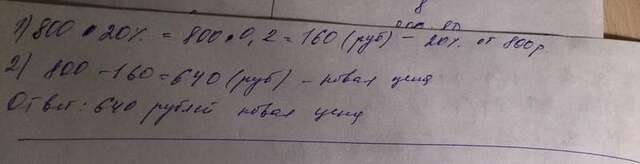 8
1) 800 • 20% = 800 • 0,2 = 160 (руб) - 20% от 800р.
2) 800 - 160 = 640 (руб) - новая цена
Ответ: 640 рублей новая цена